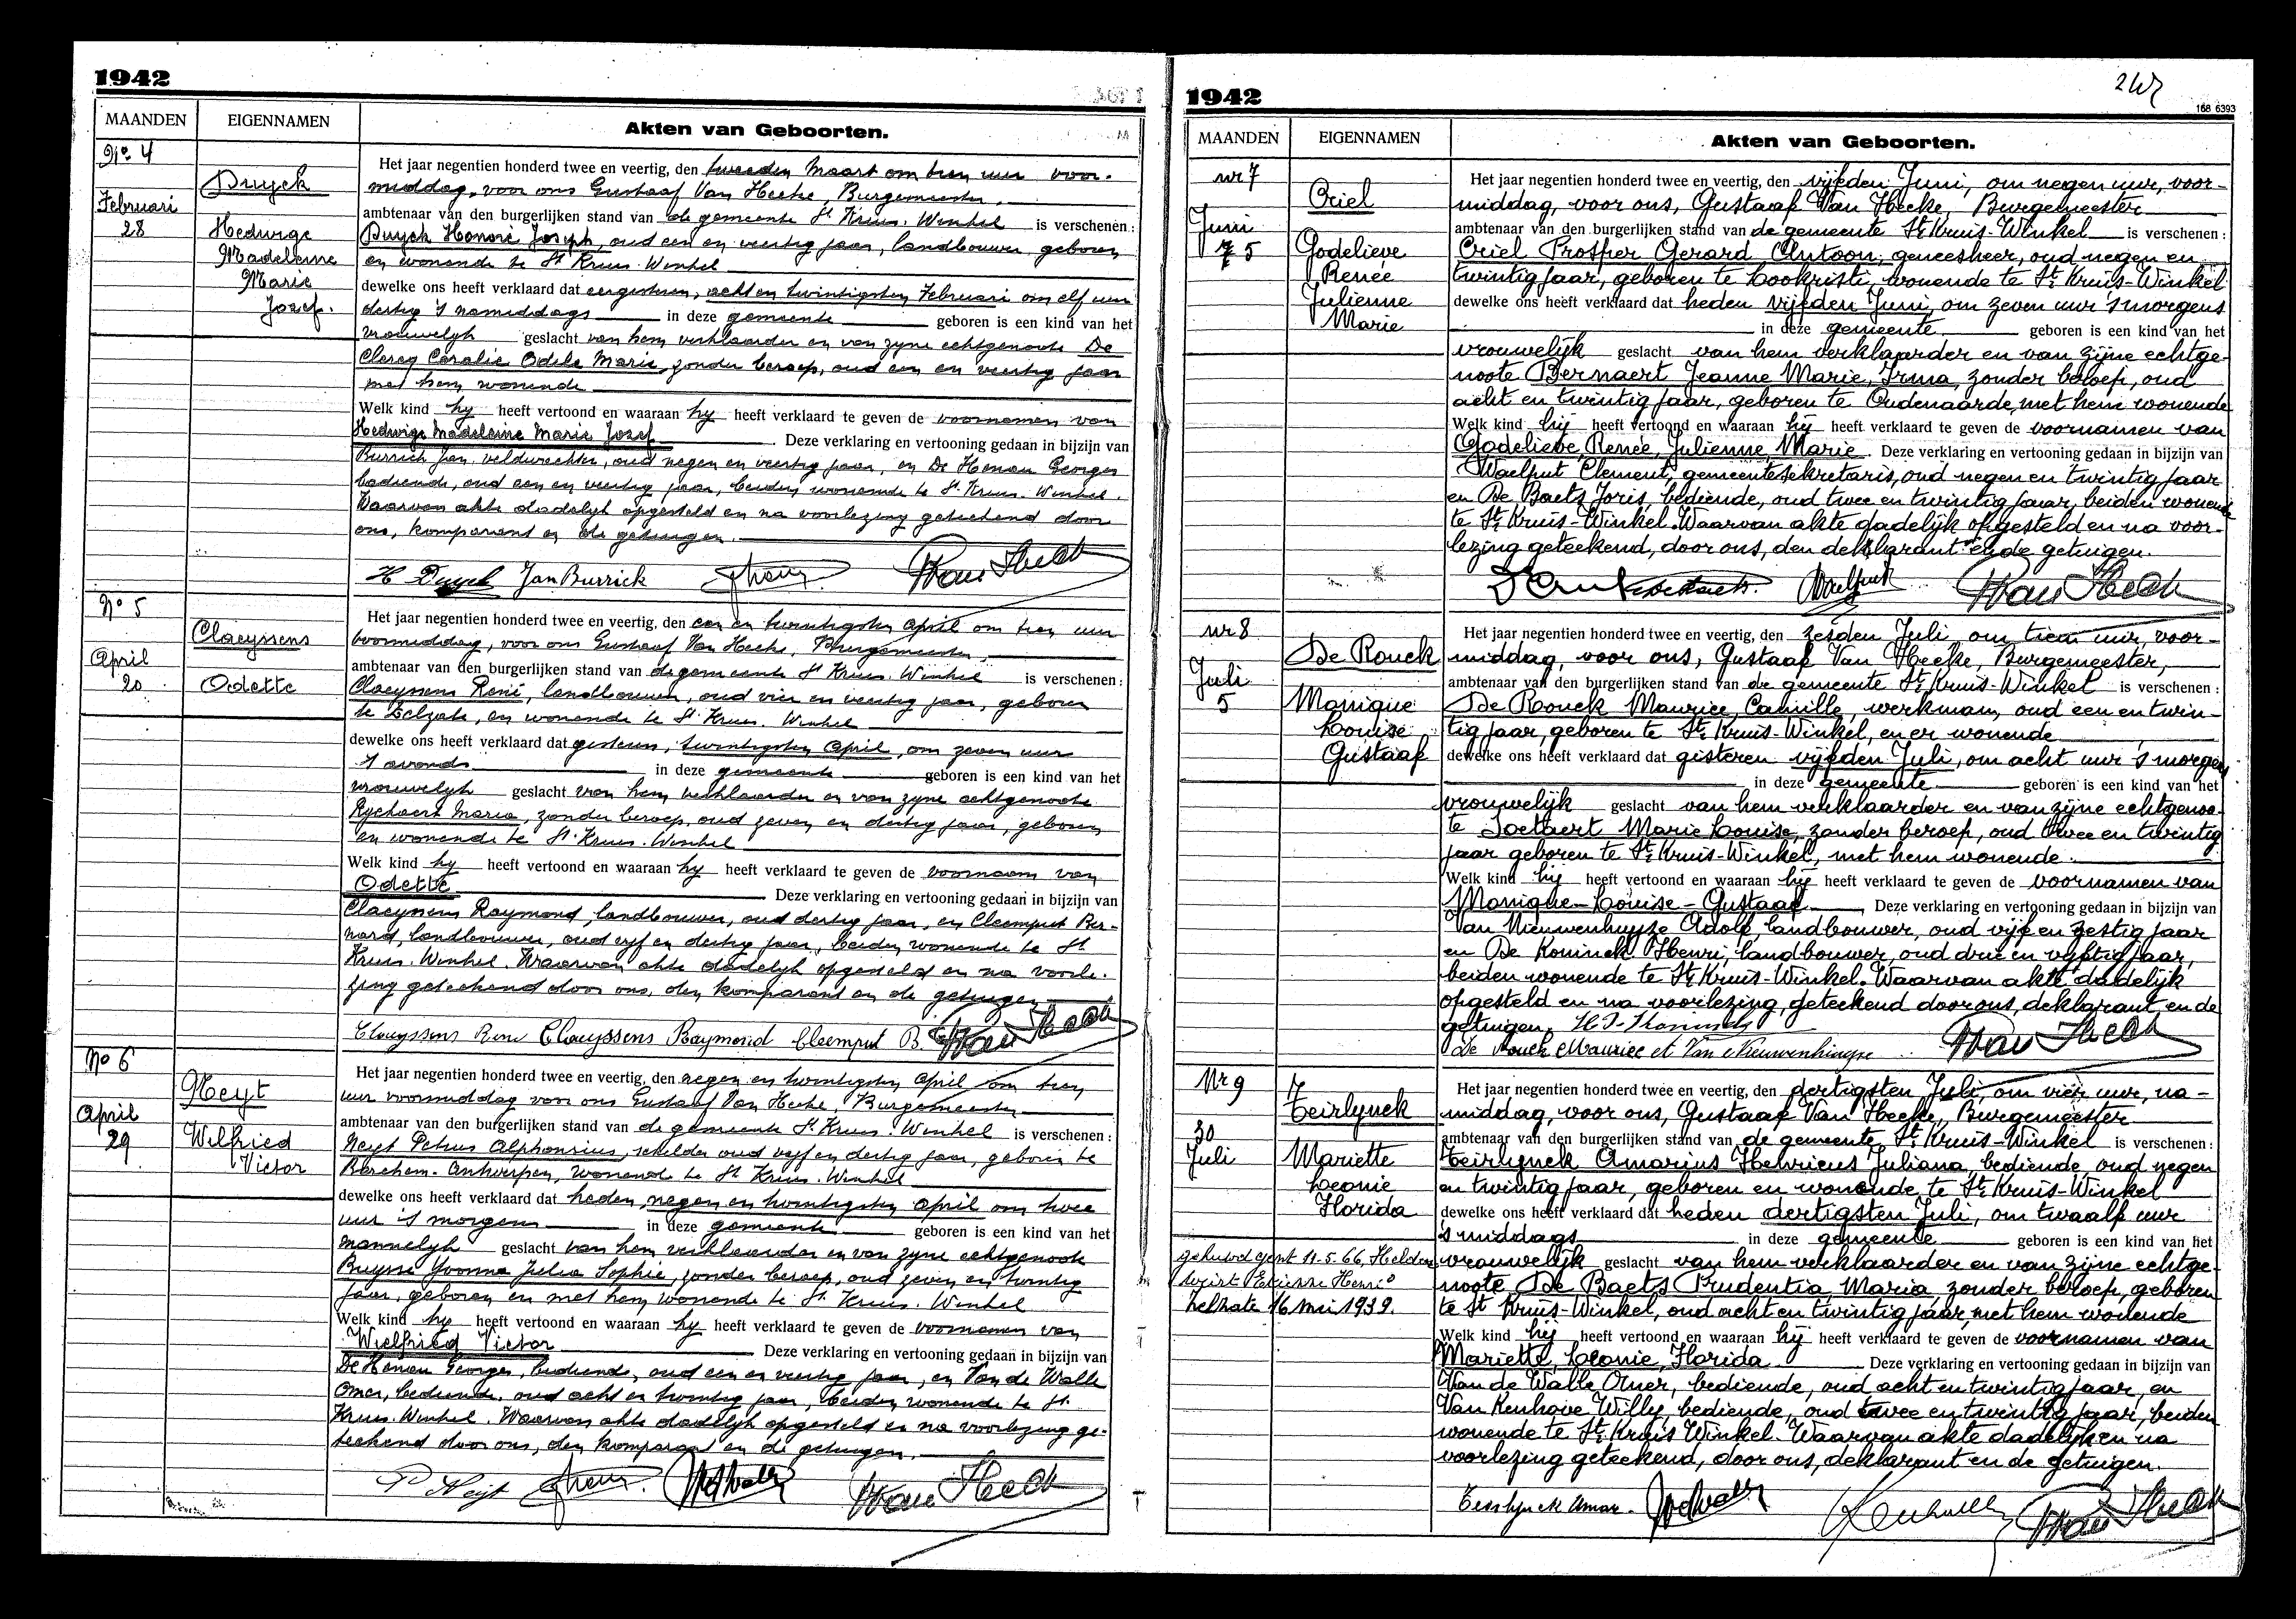 1942
MAANDEN
EIGENNAMEN
Akten van Geboorten.
No 4
Duyck
Februari
28
Hedwige
Madeleine
Marie
Jozef.
Het jaar negentien honderd twee en veertig, den tweeden Maart om tien uur voor-
middag, voor ons Gustaaf Van Hecke, Burgemeester,
ambtenaar van den burgerlijken stand van de gemeente St Kruis-Winkel is verschenen:
Duyck Honoré Joseph, oud een en veertig jaar, landbouwer, geboren
en wonende te St Kruis-Winkel
dewelke ons heeft verklaard dat eergisteren, acht en twintigsten Februari om elf uur
dertig 's namiddags in deze gemeente geboren is een kind van het
vrouwelyk geslacht van hem verklaarder en van zyne echtgenoote De
Clercq Coralie Odile Marie, zonder beroep, oud een en veertig jaar
met hem wonende
Welk kind hy heeft vertoond en waaraan hy heeft verklaard te geven de voornamen van
Hedwige Madeleine Marie Jozef. Deze verklaring en vertooning gedaan in bijzijn van
Burrick Jan, veldwachter, oud negen en veertig jaar, en De Henau Georges
bediende, oud een en veertig jaar, beiden wonende te St Kruis-Winkel.
Waarvan akte dadelyk opgesteld en na voorlezing geteekend door
ons, komparant en de getuigen.
H Duyck Jan Burrick Van Hecke
No 5
Claeyssens
April
20
Odette
Het jaar negentien honderd twee en veertig, den een en twintigsten April om tien uur
voormiddag, voor ons Gustaaf Van Hecke, Burgemeester,
ambtenaar van den burgerlijken stand van de gemeente St Kruis-Winkel is verschenen:
Claeyssens René, landbouwer, oud vier en veertig jaar, geboren
te Zelzate, en wonende te St Kruis-Winkel
dewelke ons heeft verklaard dat gisteren, twintigsten April, om zeven uur
's avonds in deze gemeente geboren is een kind van het
vrouwelyk geslacht van hem verklaarder en van zyne echtgenoote
Ryckaert Maria, zonder beroep, oud zeven en dertig jaar, geboren
en wonende te St Kruis-Winkel
Welk kind hy heeft vertoond en waaraan hy heeft verklaard te geven de voornaam van
Odette Deze verklaring en vertooning gedaan in bijzijn van
Claeyssens Raymond, landbouwer, oud dertig jaar, en Cleemput Ber-
nard, landbouwer, oud vyf en dertig jaar, beiden wonende te St
Kruis-Winkel. Waarvan akte dadelyk opgesteld en na voorle-
zing geteekend door ons, den komparant en de getuigen
Claeyssens René Claeyssens Raymond Cleemput B. Van Hecke
No 6
Neyt
April
29
Wilfried
Victor
Het jaar negentien honderd twee en veertig, den negen en twintigsten April om tien
uur voormiddag voor ons Gustaaf Van Hecke, Burgemeester
ambtenaar van den burgerlijken stand van de gemeente St Kruis-Winkel is verschenen:
Neyt Petrus Alphonsius, schilder oud vyf en dertig jaar, geboren te
Berchem-Antwerpen, wonende te St Kruis-Winkel
dewelke ons heeft verklaard dat heden, negen en twintigsten April om twee
uur 's morgens in deze gemeente geboren is een kind van het
mannelyk geslacht van hem verklaarder en van zyne echtgenoote
Buysse Yvonna Julia Sophie, zonder beroep, oud zeven en twintig
jaar, geboren en met hem wonende te St. Kruis-Winkel
Welk kind hy heeft vertoond en waaraan hy heeft verklaard te geven de voornamen van
Wielfried Victor Deze verklaring en vertooning gedaan in bijzijn van
De Henau Georges, bediende, oud een en veertig jaar, en Van de Walle
Omer, bediende, oud acht en twintig jaar, beiden wonende te St.
Kruis-Winkel. Waarvan akte dadelyk opgesteld en na voorlezing ge-
teekend door ons, den komparant en de getuigen.
P Neijt Van Hecke
1942
168 6393
MAANDEN
EIGENNAMEN
Akten van Geboorten.
nr 7
Criel
Juni
5
Godelieve
Renée
Julienne
Marie
Het jaar negentien honderd twee en veertig, den vijfden Juni, om negen uur, voor-
middag, voor ons, Gustaaf Van Hecke, Burgemeester
ambtenaar van den burgerlijken stand van de gemeente St Kruis-Winkel is verschenen:
Criel Prosper Gerard Antoon, geneesheer, oud negen en
twintig jaar, geboren te Lookristi, wonende te St Kruis-Winkel
dewelke ons heeft verklaard dat heden vijfden Juni, om zeven uur 's morgens
in deze gemeente geboren is een kind van het
vrouwelijk geslacht van hem verklaarder en van zijne echtge-
noote Bernaert Jeanne Marie, Irma, zonder beroep, oud
acht en twintig jaar, geboren te Oudenaarde, met hem wonende
Welk kind hij heeft vertoond en waaraan hij heeft verklaard te geven de voornamen van
Godelieve, Renée, Julienne, Marie. Deze verklaring en vertooning gedaan in bijzijn van
Waelput Clement, gemeentesekretaris, oud negen en twintig jaar
en De Baets Joris, bediende, oud twee en twintig jaar, beiden wonende
te St Kruis-Winkel. Waarvan akte dadelijk opgesteld en na voor-
lezing geteekend, door ons, den deklarant en de getuigen.
Waelput Van Hecke
nr 8
De Rouck
Juli
5
Monique
Louise
Gustaaf
Het jaar negentien honderd twee en veertig, den zesden Juli, om tien uur, voor-
middag, voor ons, Gustaaf Van Hecke, Burgemeester,
ambtenaar van den burgerlijken stand van de gemeente St Kruis-Winkel is verschenen:
De Rouck Maurice, Camille, werkman, oud een en twin-
tig jaar, geboren te St Kruis-Winkel, en er wonende
dewelke ons heeft verklaard dat gisteren vijfden Juli, om acht uur 's morgens
in deze gemeente geboren is een kind van het
vrouwelijk geslacht van hem verklaarder en van zijne echtgenoo-
te Soetaert Marie Louise, zonder beroep, oud twee en twintig
jaar geboren te St Kruis-Winkel, met hem wonende
Welk kind hij heeft vertoond en waaraan hij heeft verklaard te geven de voornamen van
Monique-Louise-Gustaaf Deze verklaring en vertooning gedaan in bijzijn van
Van Nieuwenhuyse Adolf, landbouwer, oud vijf en zestig jaar
en De Koninck Henri, landbouwer, oud drie en vyftig jaar,
beiden wonende te St Kruis-Winkel. Waarvan akte dadelijk
opgesteld en na voorlezing, geteekend door ons, deklarant en de
getuigen.
De Rouck Maurice et Van Nieuwenhuyse Van Hecke
Nr 9
Teirlynck
30
Juli
Mariette
Leonie
Florida
gehuwd Gent 11-5-66,
16 Mei 1939.
Het jaar negentien honderd twee en veertig, den dertigsten Juli, om vier uur, na-
middag, voor ons, Gustaaf Van Hecke, Burgemeester
ambtenaar van den burgerlijken stand van de gemeente St Kruis-Winkel is verschenen:
Teirlynck Omarius Henricus Juliana, bediende, oud negen
en twintig jaar, geboren en wonende te St Kruis-Winkel
dewelke ons heeft verklaard dat heden dertigsten Juli, om twaalf uur
's middags in deze gemeente geboren is een kind van het
vrouwelijk geslacht van hem verklaarder en van zijne echtge-
noote De Baets Prudentia, Maria, zonder beroep, geboren
te St Kruis-Winkel, oud acht en twintig jaar, met hem wonende
Welk kind hij heeft vertoond en waaraan hij heeft verklaard te geven de voornamen van
Mariette, Leonie, Florida Deze verklaring en vertooning gedaan in bijzijn van
Van de Walle Omer, bediende, oud acht en twintig jaar, en
Van Kenhove Willy, bediende, oud twee en twintig jaar, beiden
wonende te St Kruis Winkel. Waarvan akte dadelijk en na
voorlezing geteekend, door ons, deklarant en de getuigen.
Teirlynck Omar. Van Hecke